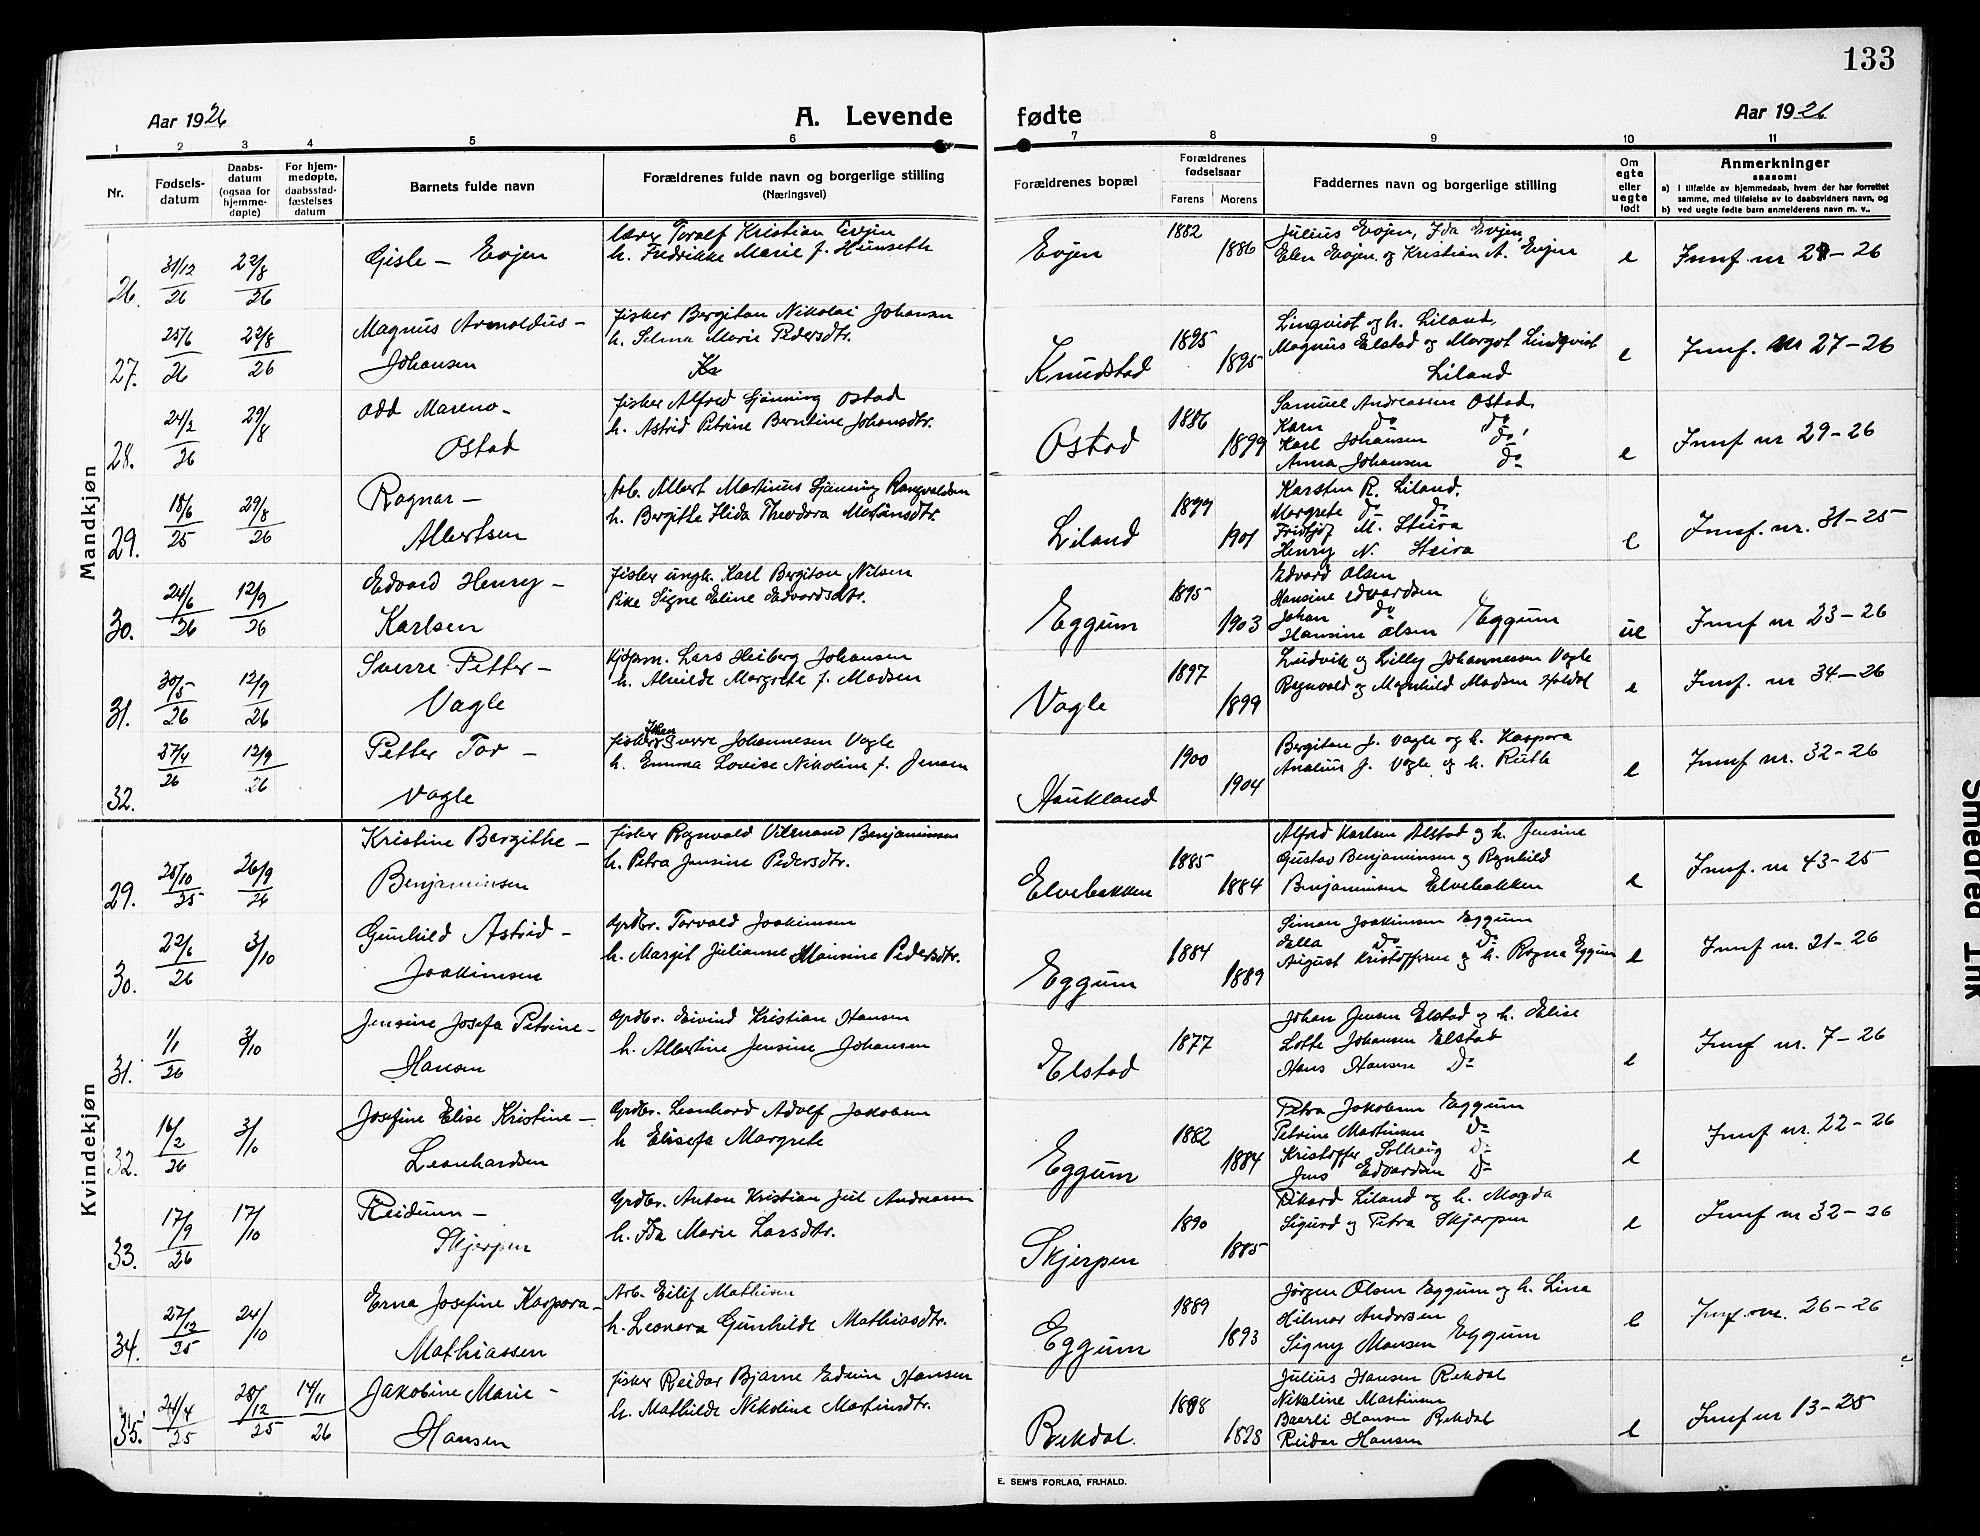 133
Aar 1926
A. Levende fødte
Aar 1926
1 2 3 4 5 6 7 8 9 10 11
Nr.
Fødsels-
datum
Daabs-
datum
(ogsaa for
hjemme-
døpte)
For hjem-
medøpte,
daabsstad-
fæstelses
datum
Barnets fulde navn
Forældrenes fulde navn og borgerlige stilling
(Næringsvei)
Forældrenes bopæl
Forældrenes
fødselsaar
Farens Morens
Faddernes navn og borgerlige stilling
Om
egte
eller
uegte
født
Anmerkninger
saasom:
a) i tilfælde av hjemmedaab, hvem der har forrettet
samme, med tilføielse av to daabsvidners navn, og
b) ved uegte fødte barn anmelderens navn m. v..
Mandkjøn
26. 31/12 26 22/8 26
Gisle – Evjen
lærer Toralf Kristian Evjen
h. Fredrikke Marie f. Hunseth
Evjen 1882 1886
Julius Evjen, Ida Evjen
Elen Evjen og Kristian A. Evjen
e
Innf nr 24–26
27. 25/6 26 22/8 26
Magnus Arnoldus –
Johansen
fisker Bergiton Nikolai Johansen
h. Selma Marie Pedersdtr.
Knudstad 1895 1895
Linqvist og h. Liland,
Magnus Elstad og Margot Lindqvist
Liland
e
Innf. nr 27–26
28. 24/2 26 29/8
Odd Mareno –
Ostad
fisker Alfred Hjønning Ostad
h. Astrid Petrine Berntine Johansdtr.
Ostad 1886 1899
Samuel Andreassen Ostad,
Karn do do
Karl Johansen do,
Anna Johansen do
e
Innf nr 29–26
29. 18/6 25 29/8 26
Ragnar –
Albertsen
Arb. Albert Martinus Hjønning Rangvaldsen
h. Bergitte Hida Theodora Martinsdtr.
Liland 1899 1901
Karsten R. Liland.
Margrete do do
Fridtjof M. Steira
Henry N. Steira
e
Innf. nr. 31–25
30. 24/6 26 12/9 26
Edvard Henry –
Karlsen
fisker ungk. Karl Bergiton Nilsen
Pike Signe Eline Edvardsdtr.
Eggum 1895 1903
Edvard Olsen
Hansine Edvardsen
Johan do
Hansine Olsen Eggum
ue
Innf nr 23–26
31. 30/5 26 12/9 26
Sverre Petter –
Vagle
Kjøpm. Lars Heiberg Johansen
h. Alvilde Margrete f. Madsen
Vagle 1897 1899
Ludvik og Lilly Johannessen Vagle
Ragnvald og Magnhild Madsen Holdal
e
Innf. nr 34–26
32. 27/4 26 12/9 26
Petter Tor –
Vagle
Johan
fisker Sverre Johannesen Vagle
h. Emma Lovise Nikoline f. Jensen
Haukland 1900 1904
Bergiton J. Vagle og h. Kaspara
Analius J. Vagle og h. Ruth
e
Innf nr. 32–26
Kvindekjøn
29. 25/10 25 26/9 26
Kristine Bergithe –
Benjaminsen
fisker Ragnvald Vilmand Benjaminsen
h. Petra Jensine Pedersdtr.
Elvebakken 1885 1884
Alfred Karlsen Alstad og h. Jensine
Gustav Benjaminsen og Ragnhild
Benjaminsen Elvebakken
e
Innf. nr 43–25
30. 22/6 26 3/10
Gunhild Astrid –
Joakimsen
Grdbr. Torvald Joakimsen
h. Margit Julianne Hansine Pedersdtr.
Eggum 1884 1889
Simon Joakimsen Eggum
Della do do
August Kristoffersen og h. Ragna Eggum
e
Innf nr. 21–26
31. 1/1 26 3/10
Jensine Josefa Petrine –
Hansen
Grdbr. Eivind Kristian Hansen
h. Albertine Jensine Johansen
Elstad 1877
Johan Jensen Elstad og h. Elise
Lotte Johansen Elstad
Hans Hansen Do
e
Innf nr. 7–26
32. 16/2 26 3/10
Josefine Elise Kristine –
Leonhardsen
Grdbr. Leonhard Adolf Jakobsen
h Elisefa Margrete
Eggum 1882 1884
Petra Jakobsen Eggum
Petrine Martinsen Do
Kristoffer Solhaug Do
Jens Edvardsen Do
e
Innf nr. 22–26
33. 17/9 26 17/10
Reidunn –
Skjerpen
Grdbr. Anton Kristian Juul Andreassen
h. Ida Marie Larsdtr.
Skjerpen 1890 1885
Rikard Liland og h. Magda
Sigurd og Petra Skjerpen
e
Innf nr 32–26
34. 27/12 25 24/10
Erna Josefine Kaspara –
Mathiassen
Arb. Eilif Mathisen
h. Leonora Gunhilde Mathiasdtr.
Eggum 1889 1893
Jørgen Olsen Eggum og h. Lina
Hilmar Andersen
Signy Hansen Eggum
e
Innf. nr. 26–26
35. 24/4 25 28/12 25 14/11 26
Jakobine Marie –
Hansen
fisker Reidar Bjarne Edvin Hansen
h. Mathilde Nikoline Martinsdtr.
Rekdal. 1898 1898
Julius Hansen Rekdal
Nikoline Martinsen
Baarli Hansen Rekdal
Reidar Hansen
e
Innf nr 13–25
E. SEM'S FORLAG, FR.HALD.
Smedred Ink